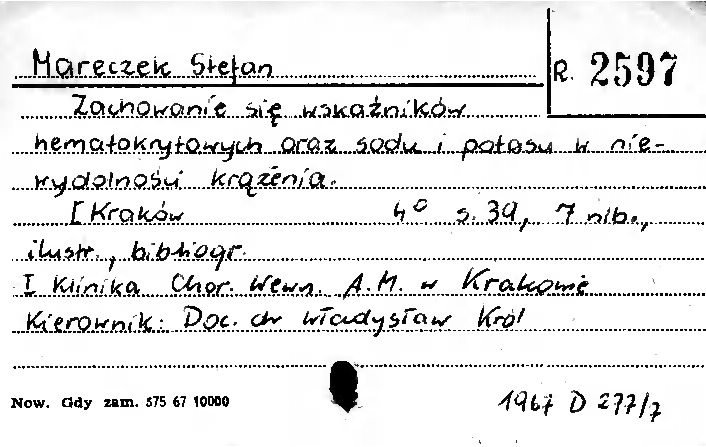 Mareczek Stefan
R. 2597
Zachowanie się wskaźników
hematokrytowych oraz sodu i potasu w nie-
wydolności krążenia.
[Kraków 4° s. 39, 7 nlb.,
ilustr., bibliogr.
I Klinika Chor. Wewn. A.M. w Krakowie
Kierownik: Doc. dr Władysław Król
Now. Gdy zam. 575 67 10000
1967 D 277/7